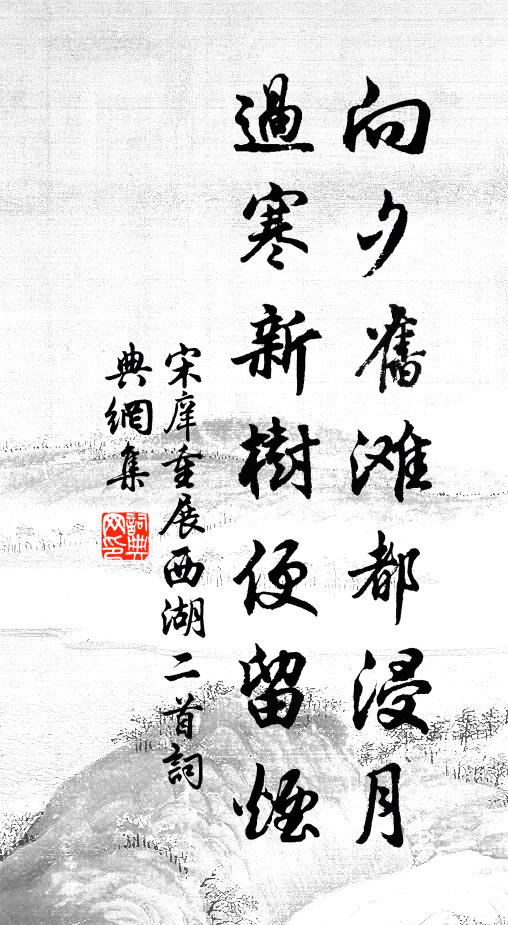 向夕舊滩都浸月
過寒新樹便留煙
宋庠重展西湖二首詞
典網集
詞典
网印